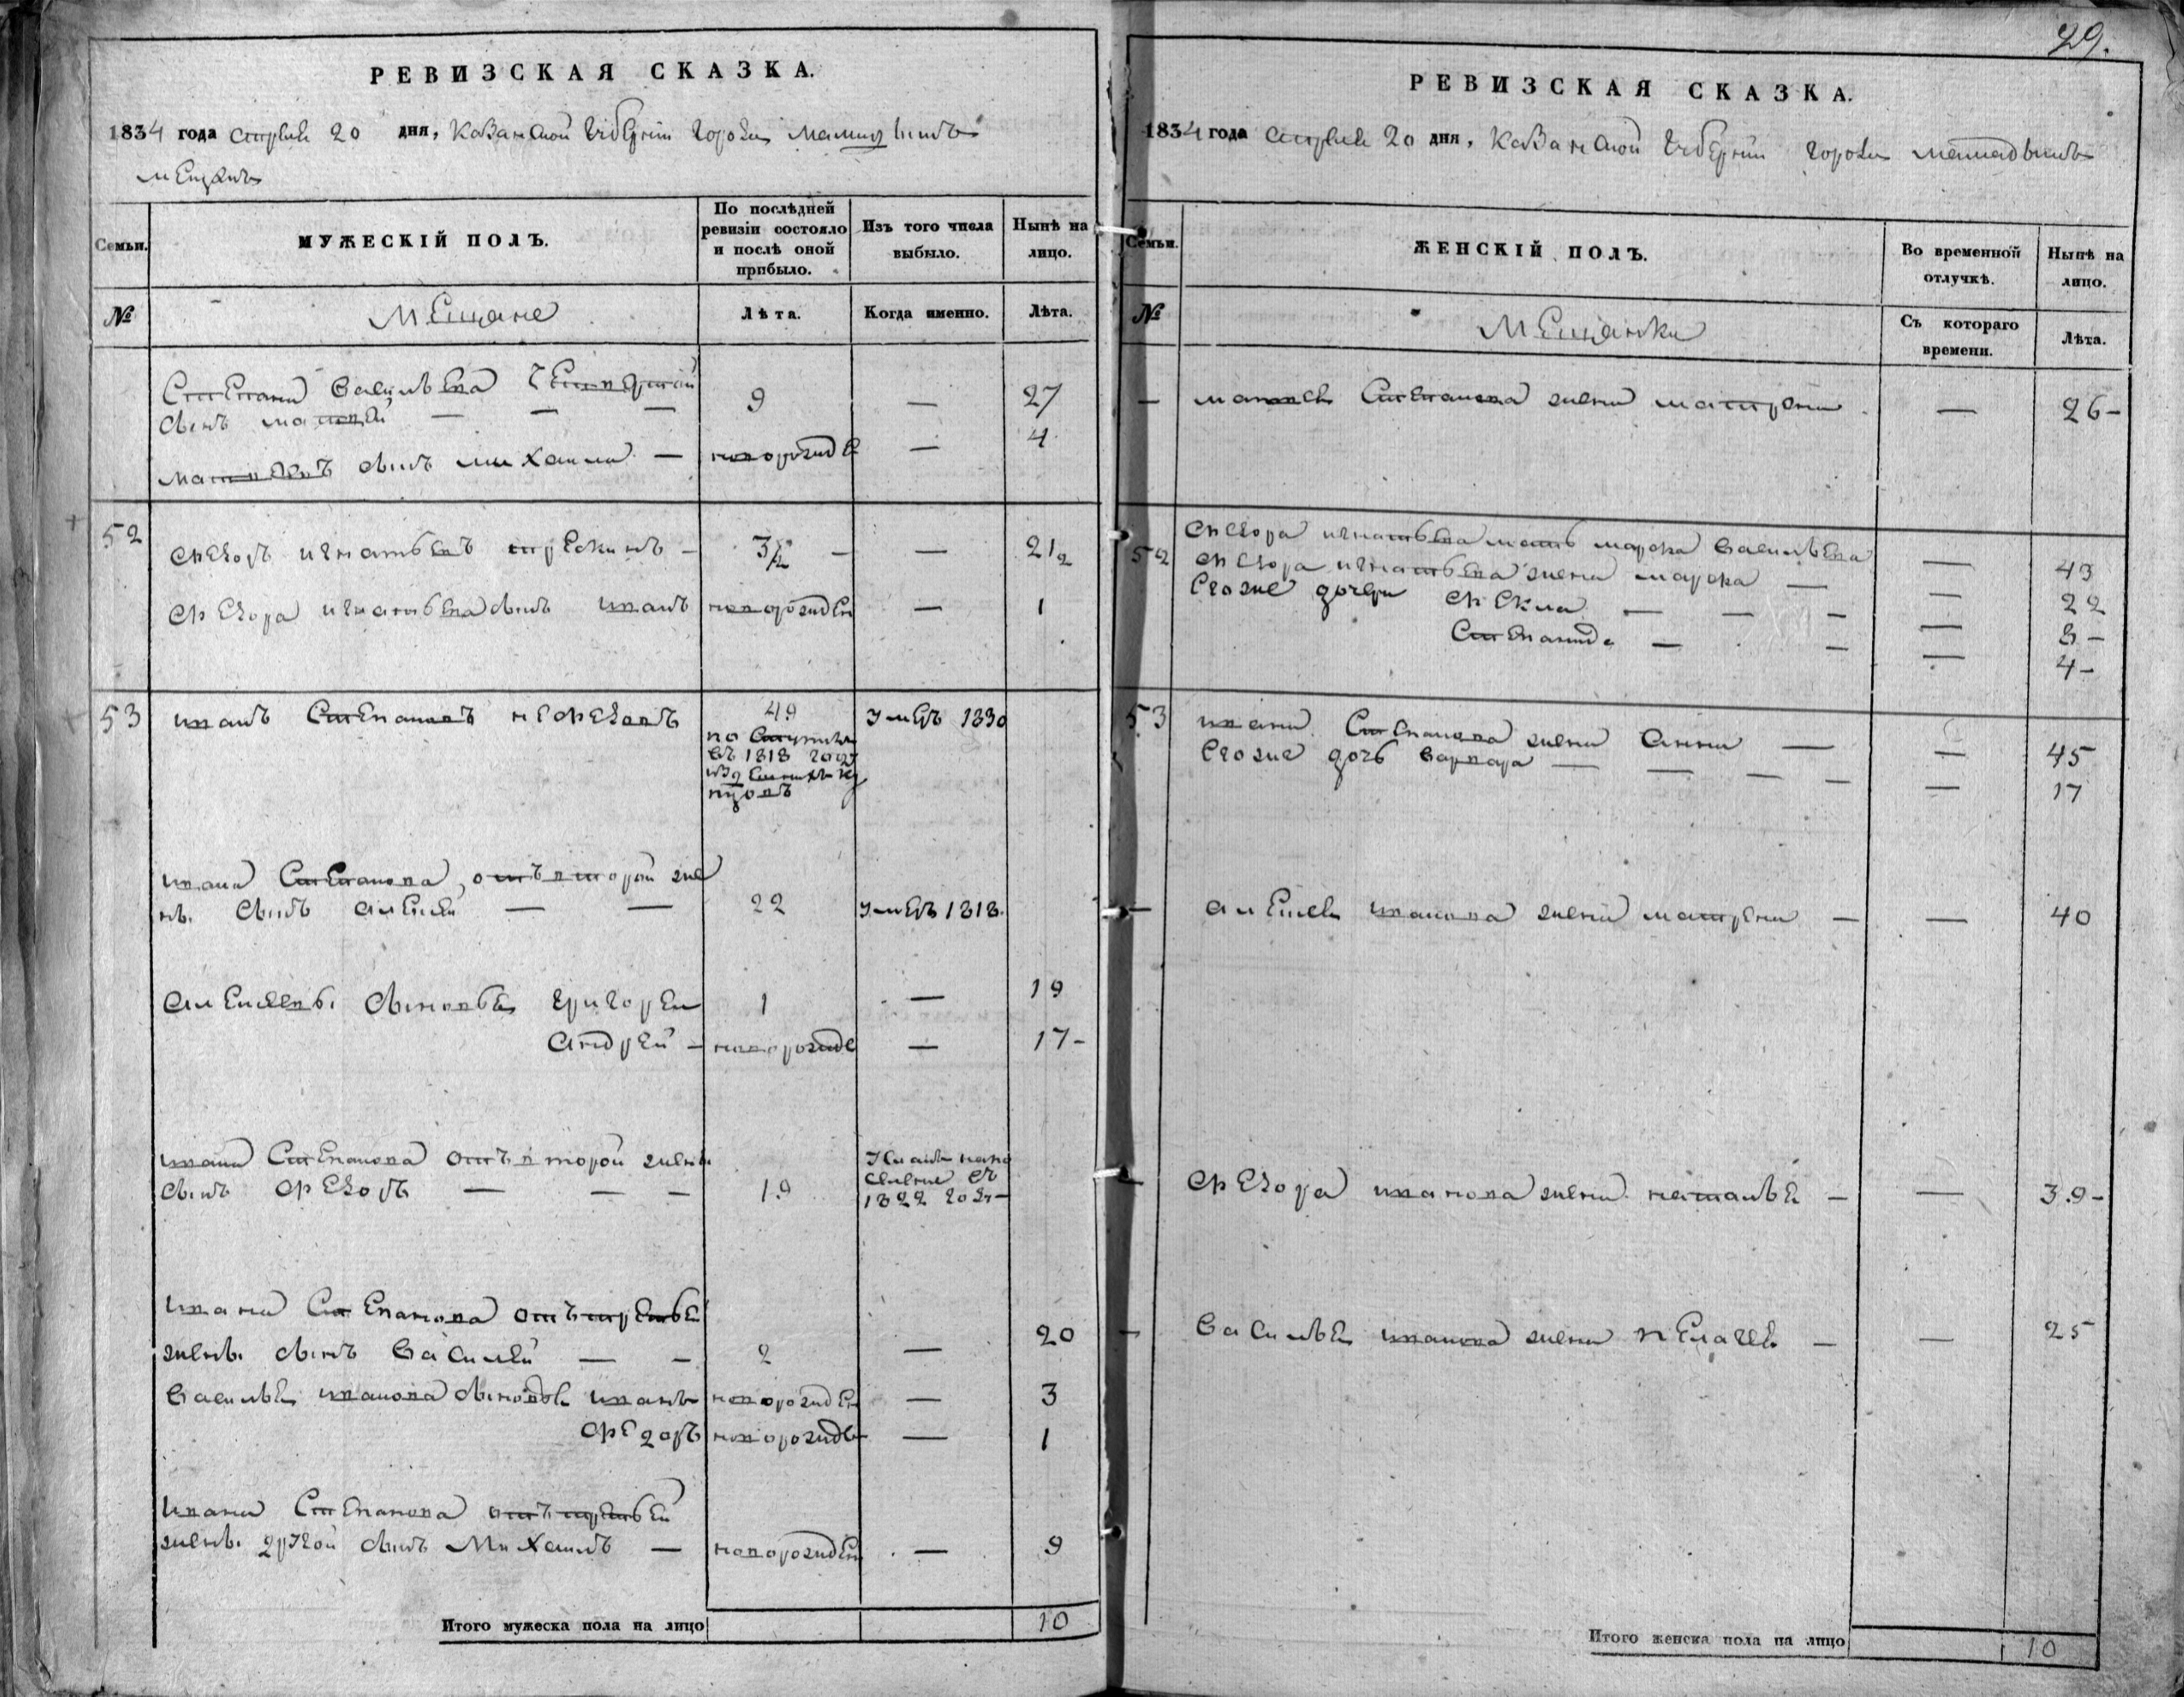 29.
РЕВИЗСКАЯ СКАЗКА.
1834 года апреля 20 дня, Казанской губернии города мамадышъ
мещанъ
Семьи.
МУЖЕСКІЙ ПОЛЪ.
По послѣдней ревизіи состояло и послѣ оной прибыло.
Изъ того числа выбыло.
Нынѣ на лицо.
№
Мещане
Лѣта.
Когда именно.
Лѣта.
Степана Васильева четвертой
сынъ матвей — — — 9 — 27
матвеевъ сынъ михаила — новорожде — 4
52 федоръ игнатьевъ — — 21½
федора игнатьева сынъ иванъ новорожден — 1
53 иванъ Степановъ нефедовъ 49 умеръ 1830
поступилъ
въ 1818 году
изъ
купцовъ
ивана Степанова, отъ второй же
нъ. сынъ алексей — — 22 умеръ 1818.
алексеевы сыновья григорей 1 — 19
андрей — новорожде — 17-
ивана Степанова отъ второй жены
сынъ федоръ — — — 19 1822 года
ивана Степанова отъ третьей
жены сынъ Василей — — 2 — 20
Василья иванова сыновья иванъ новорожден — 3
федоръ новорожде — 1
ивана Степанова отъ третьей
жены другой сынъ Михаилъ — новорожден — 9
Итого мужеска пола на лицо 10
РЕВИЗСКАЯ СКАЗКА.
1834 года апреля 20 дня, Казанской губернии города мамадышъ
Семьи.
ЖЕНСКІЙ ПОЛЪ.
Во временной отлучкѣ.
Нынѣ на лицо.
№
Мещанки
Съ котораго времени.
Лѣта.
— матвея Степанова жена матрена — 26-
52 федора игнатьева мать марфа Васильева — 43
федора игнатьева жена марфа — — 22
Его же дочери фекла — — — — 8-
Степанида — — — 4-
53 ивана Степанова жена анна — — 45
Его же дочь варвара — — — — — 17
— алексея иванова жена матрена — — 40
— федора иванова жена наталья — — 39-
— Василья иванова жена пелагея — — 25
Итого женска пола на лицо 10